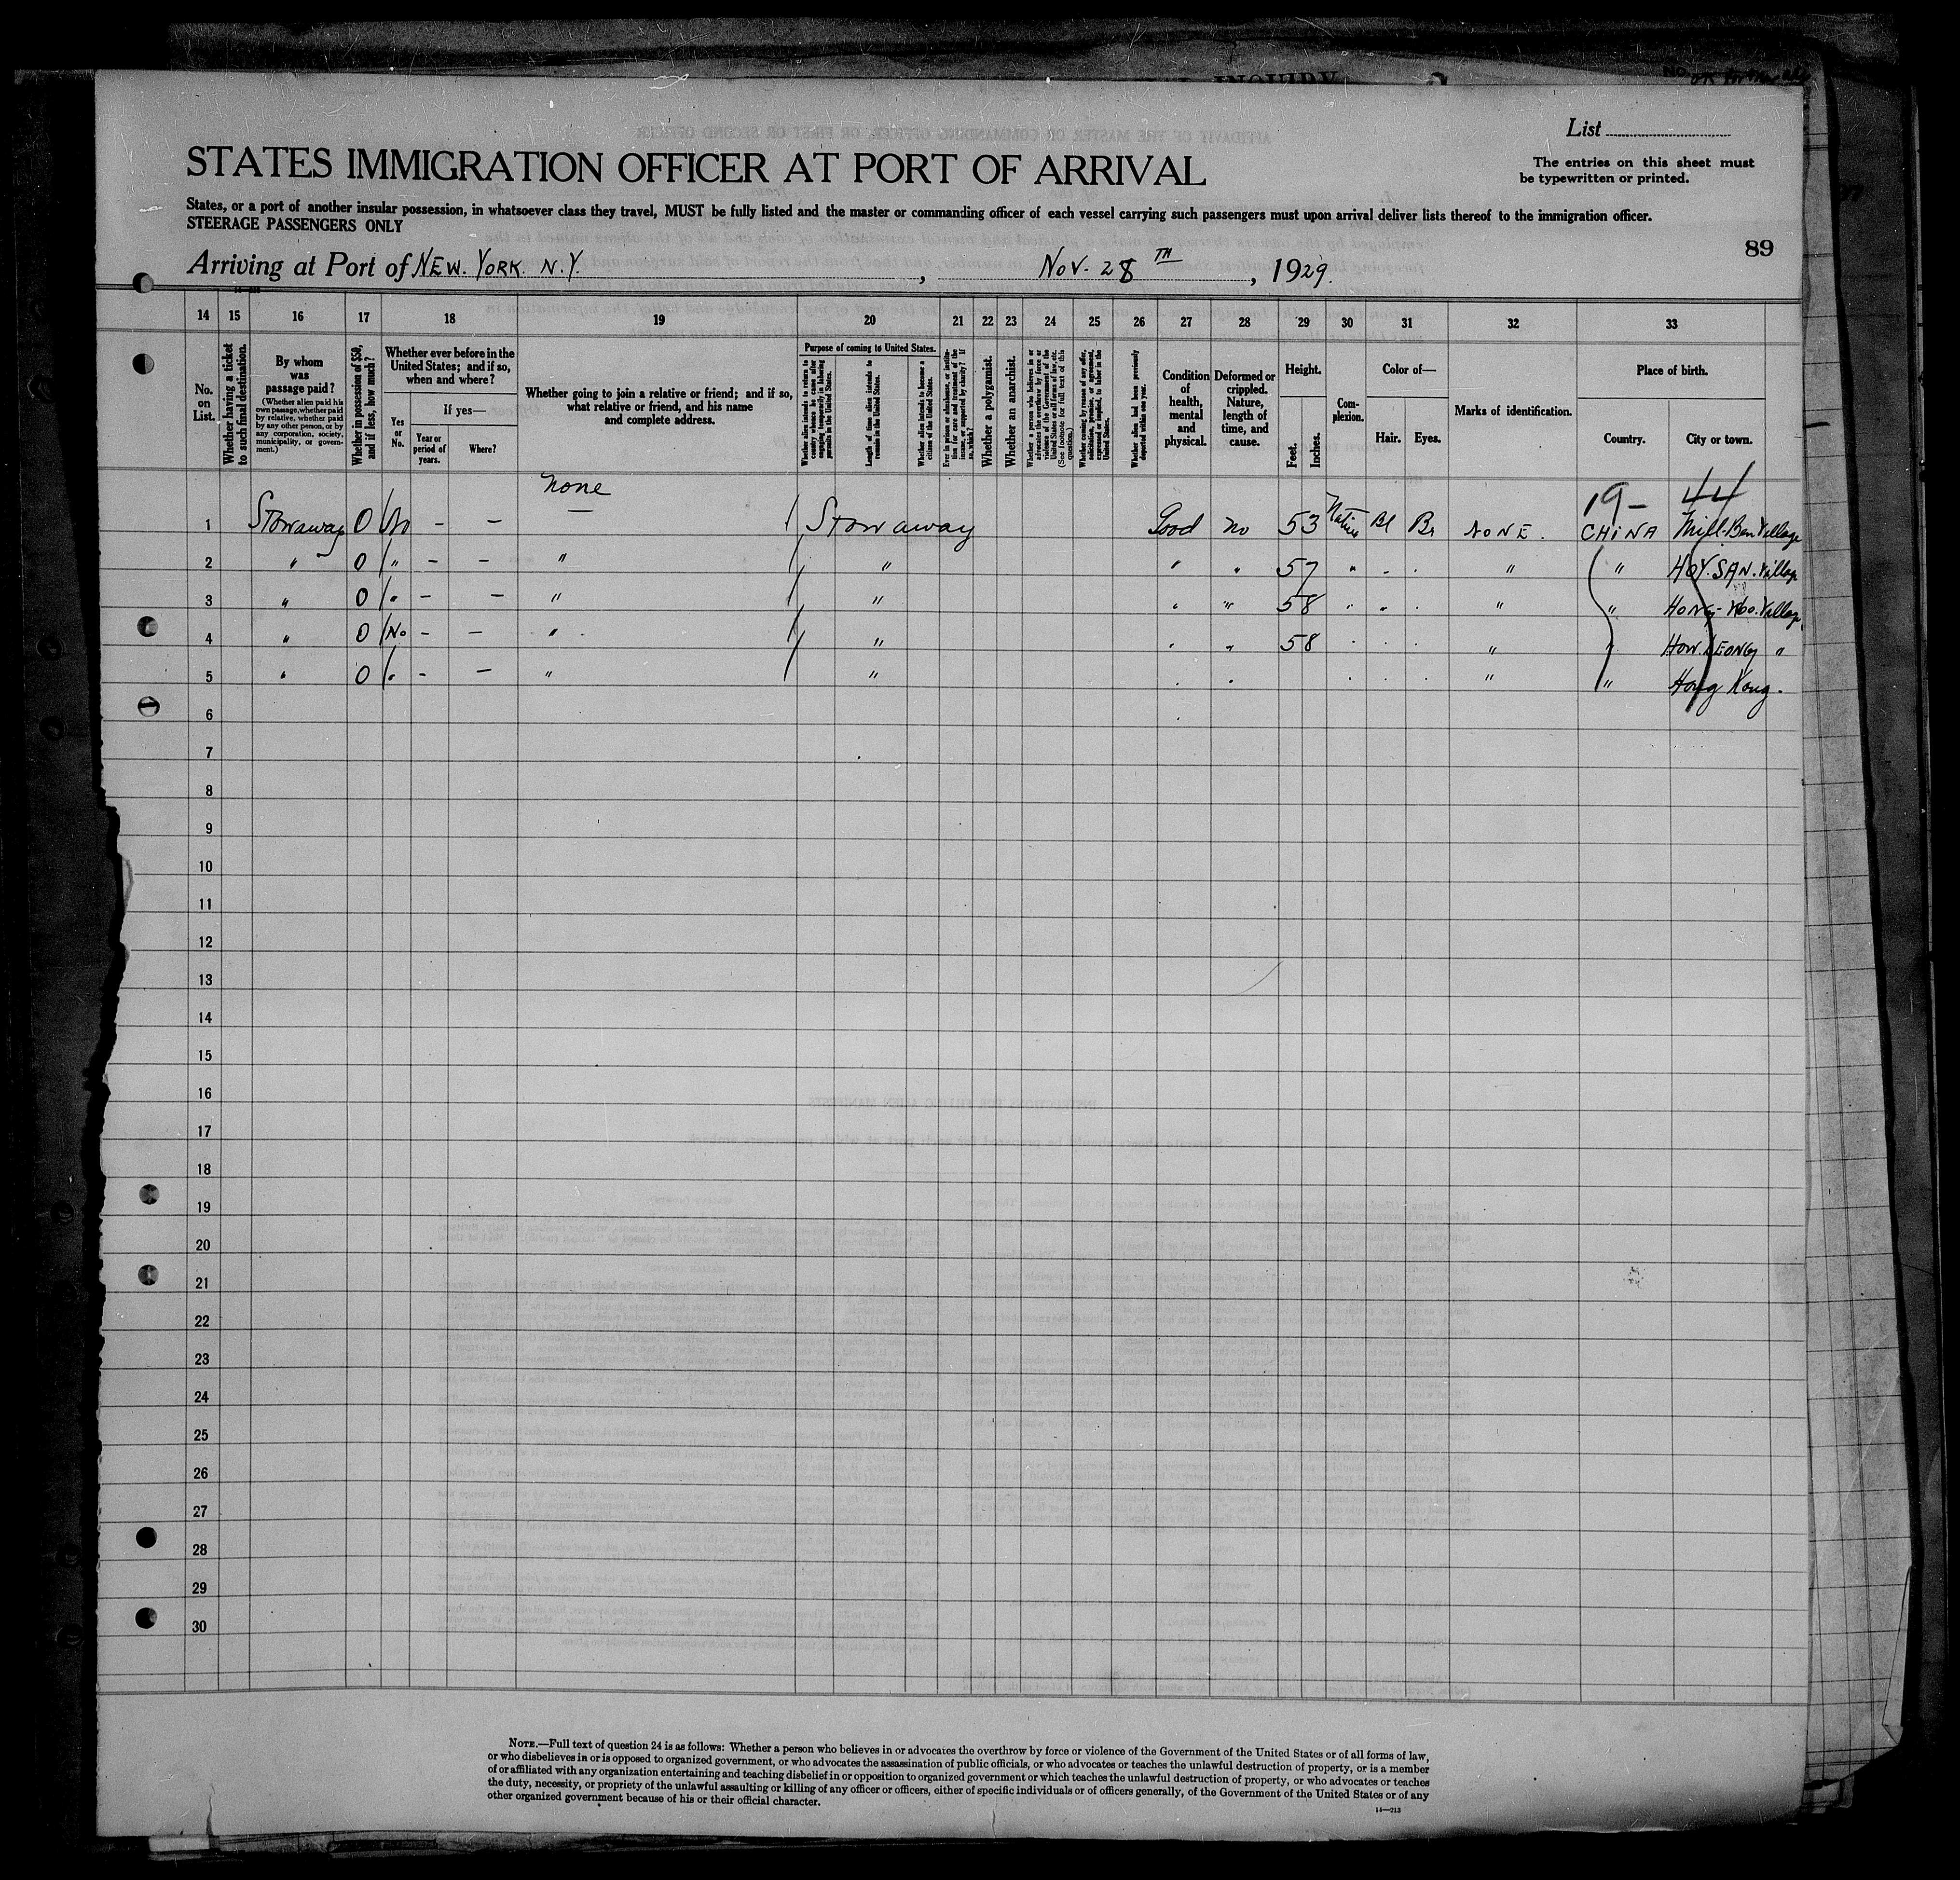 List
STATES IMMIGRATION OFFICER AT PORT OF ARRIVAL
The entries on this sheet must
be typewritten or printed.
States, or a port of another insular possession, in whatsoever class they travel, MUST be fully listed and the master or commanding officer of each vessel carrying such passengers must upon arrival deliver lists thereof to the immigration officer.
STEERAGE PASSENGERS ONLY
89
Arriving at Port of NEW. YORK. N.Y. , NOV. 28 TH , 1929.
14 15 16 17 18 19 20 21 22 23 24 25 26 27 28 29 30 31 32 33
No. on List.
Whether having a ticket to such final destination.
By whom was passage paid?
(Whether alien paid his own passage, whether paid by relative, whether paid by any other person, or by any corporation, society, municipality, or government.)
Whether in possession of $50, and if less, how much?
Whether ever before in the United States; and if so, when and where?
Yes or No.
If yes—
Year or period of years.
Where?
Whether going to join a relative or friend; and if so, what relative or friend, and his name and complete address.
Purpose of coming to United States.
Whether alien intends to return to country whence he came after engaging temporarily in laboring pursuits in the United States.
Length of time alien intends to remain in the United States.
Whether alien intends to become a citizen of the United States.
Ever in prison or almshouse, or institution for care and treatment of the insane, or supported by charity? If so, which?
Whether a polygamist.
Whether an anarchist.
Whether a person who believes in or advocates the overthrow by force or violence of the Government of the United States or all forms of law, etc. (See footnote for full text of this question.)
Whether coming by reason of any offer, solicitation, promise, or agreement, expressed or implied, to labor in the United States.
Whether alien had been previously deported within one year.
Condition of health, mental and physical.
Deformed or crippled. Nature, length of time, and cause.
Height.
Feet. Inches.
Complexion.
Color of—
Hair. Eyes.
Marks of identification.
Place of birth.
Country. City or town.
none
19- 44
1 Stowaway 0 No - - — Stowaway Good no 53 Native Bl Br NONE. CHINA Village
2 " 0 " - - " " " " 57 " - . " " HOY. SAN. Village
3 " 0 " - - " " " " 58 " " . " " Village
4 " 0 No - - " " " " 58 . . . " " HOW. LEONG "
5 " 0 " - - " " . . . . . " " Hong Kong.
6
7
8
9
10
11
12
13
14
15
16
17
18
19
20
21
22
23
24
25
26
27
28
29
30
NOTE.—Full text of question 24 is as follows: Whether a person who believes in or advocates the overthrow by force or violence of the Government of the United States or of all forms of law,
or who disbelieves in or is opposed to organized government, or who advocates the assassination of public officials, or who advocates or teaches the unlawful destruction of property, or is a member
of or affiliated with any organization entertaining and teaching disbelief in or opposition to organized government or which teaches the unlawful destruction of property, or who advocates or teaches
the duty, necessity, or propriety of the unlawful assaulting or killing of any officer or officers, either of specific individuals or of officers generally, of the Government of the United States or of any
other organized government because of his or their official character.
14—213